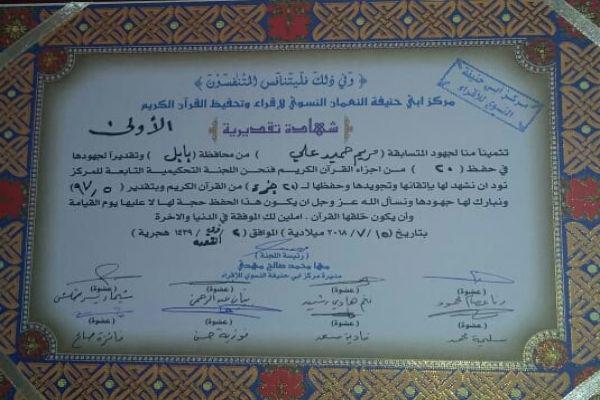 ﴿ وَفِي ذَلِكَ فَلْيَتَنَافَسِ الْمُتَنَافِسُونَ ﴾
مركز ابي حنيفة
النسوي للأقراء
مركز ابي حنيفة النعمان النسوي لأقراء وتحفيظ القرآن الكريم
شهادة تقديرية
الأولى
تثميناً منا لجهود المتسابقة ( مريم حميد علي ) من محافظة ( بابل ) وتقديراً لجهودها
في حفظ ( ٢٠ ) من اجزاء القرآن الكريم فنحن اللجنة التحكيمية التابعة للمركز
نود ان نشهد لها بإتقانها وتجويدها وحفظها لـ ( ٢٠ جزء ) من القرآن الكريم وبتقدير ( ٩٧٫٥ )
ونبارك لها جهودها ونسأل الله عز وجل ان يكون هذا الحفظ حجة لها لا عليها يوم القيامة
وأن يكون خلقها القرآن . املين لك الموفقة في الدنيا والاخرة
بتاريخ ( ١٥ / ٧ / ٢٠١٨ ميلادية ) الموافق ( ٢ ذي القعدة ١٤٣٩ هجرية )
( رئيسة اللجنة )
مها محمد صالح مهدي
مديرة مركز ابي حنيفة النسوي للأقراء
( عضوة ) ( عضوة ) ( عضوة ) ( عضوة )
رنا عصام محمود نغم هادي رشيد بيان عبدالرحمن شيماء
( عضوة ) ( عضوة ) ( عضوة ) ( عضوة )
سليمة محمد نادية سعد فوزية حسن فائزة صالح